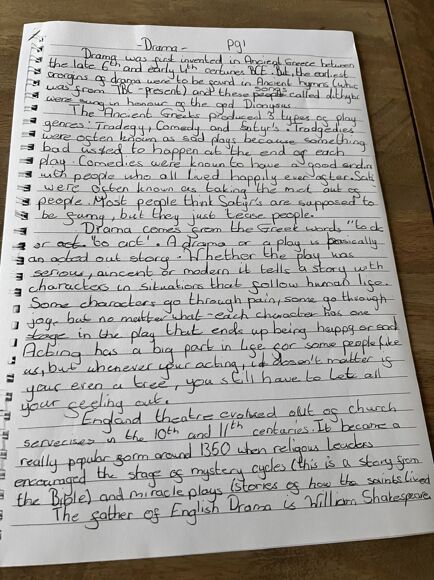 -Drama- Pg1
Drama was first invented in Ancient Greece between
the late 6th and early 4th centuries BCE. But, the earliest
orogins of drama were to be found in Ancient hymns (which
was from 1BC - present) and these songs called dithybr
were sung in honour of the god Dionysus
The Ancient Greeks produced 3 types of play
genres: Tradegy, Comedy and Satyr's. Tradgedies
were often known as sad plays because something
bad ussed to happen at the end of each
play. Comedies were known to have a good endin
with people who all lived happily ever after. Saty
were often known as taking the mick out of
people. Most people think Satyr's are supposed to
be funny, but they just tease people.
Drama comes from the Greek words "to do"
or "to act". A drama or a play is basically
an acted out story. Whether the play was
serious, aincent or modern it tells a story with
characters in situations that follow human life.
Some characters go through pain, some go through
joy, but no matter what each character has one
stage in the play that ends up being happy or sad.
Acting has a big part in life for some people like
us, but whenever your acting, it doesn't matter if
your even a tree, you still have to let all
your feeling out.
England theatre evolved out of church
servecises in the 10th and 11th centaries. It became a
really popular form around 1350 when religous leaders
encouraged the stage of mystery cycles (this is a story from
the Bible) and miracle plays (stories of how the saints lived
The father of English Drama is William Shakespeare.